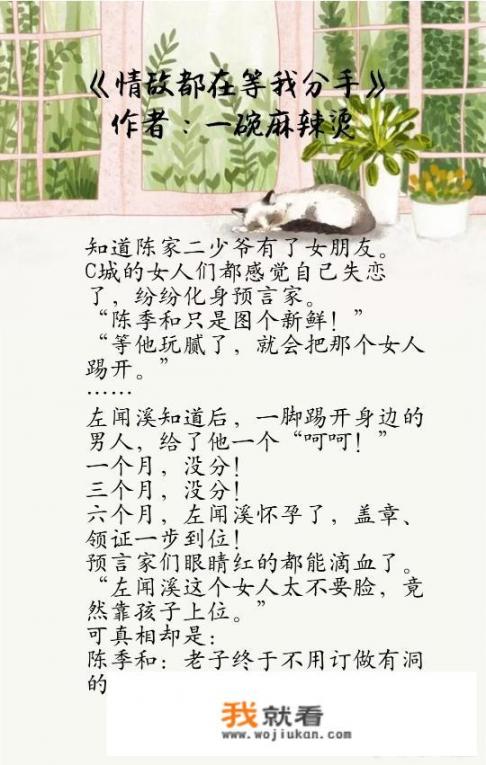 《情敌都在等我分手》
作者：一碗麻辣烫
知道陈家二少爷有了女朋友。
C城的女人们都感觉自己失恋
了，纷纷化身预言家。
“陈季和只是图个新鲜！”
“等他玩腻了，就会把那个女人
踢开。”
……
左闻溪知道后，一脚踢开身边的
男人，给了他一个“呵呵！”
一个月，没分！
三个月，没分！
六个月，左闻溪怀孕了，盖章、
领证一步到位！
预言家们眼睛红的都能滴血了。
“左闻溪这个女人太不要脸，竟
然靠孩子上位。”
可真相却是：
陈季和：老子终于不用订做有洞
的
我就看
www.wojiukan.com